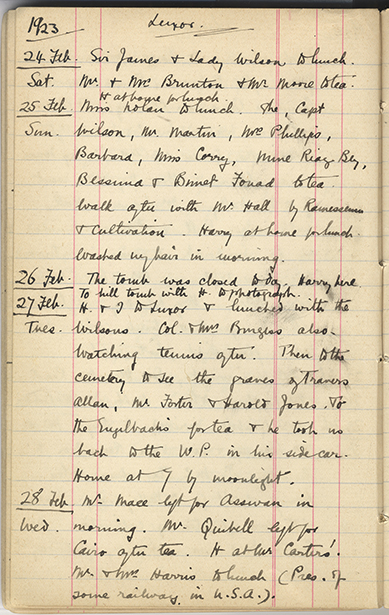 1923 Luxor.
24 Feb. Sir James & Lady Wilson to lunch.
Sat. Mr. & Mrs Brunton & Mr Moore to tea.
H at home for lunch
25 Feb. Miss Nolan to lunch. The, Capt
Sun. Wilson, Mr. Martin, Mrs Phillips,
Barbara, Miss Corry, Mme Riaz Bey,
Bessima & Fouad to tea
Walk after with Mr. Hall by Ramesseum
& Cultivation. Harry at home for lunch.
Washed my hair in morning.
26 Feb. The tomb was closed to day. Harry here
To hill tomb with H. to photograph.
27 Feb. H. & I to Luxor & lunched with the
Tues. Wilsons. Col. & Mrs Burgess also.
Watching tennis after. Then to the
cemetery to see the graves of Travers
Allan, Mr Forter & Harold Jones. To
the Engelbachs for tea & he took us
back to the W.P. in his side car.
Home at 7 by moonlight.
28 Feb Mr. Mace left for Asswan in
Wed. morning. Mr. Quibell left for
Cairo after tea. H at Mr. Carters'.
Mr. & Mrs Harris to lunch (Pres. of
some railway in U.S.A.).